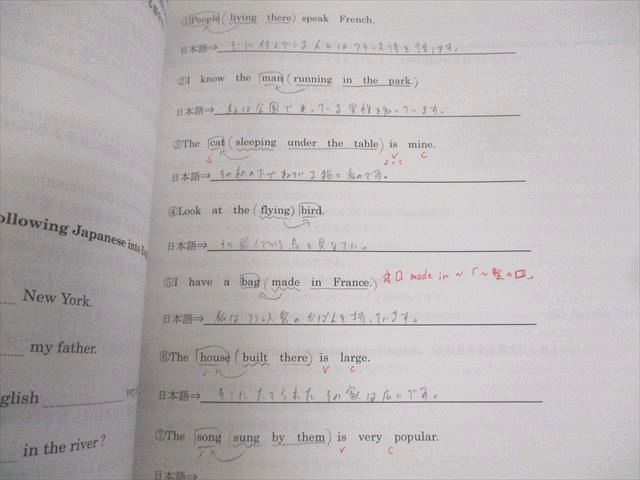 ①People (living there) speak French.
日本語⇒ そこに住んでいる人々はフランス語を話します。
②I know the man (running in the park.)
日本語⇒ 私は公園で走っている男性を知っています。
③The cat (sleeping under the table) is mine.
S V C
日本語⇒ その机の下でねている猫は私のです。
④Look at the (flying) bird.
日本語⇒ その飛んでいる鳥を見なさい。
⑤I have a bag (made in France.) made in ~ 「~製の
日本語⇒ 私はフランス製のかばんを持っています。
⑥The house (built there) is large.
S V C
日本語⇒ そこにたてられたその家は広いです。
⑦The song (sung by them) is very popular.
S V C
日本語⇒
ollowing Japanese into En
New York.
my father.
glish
in the river?